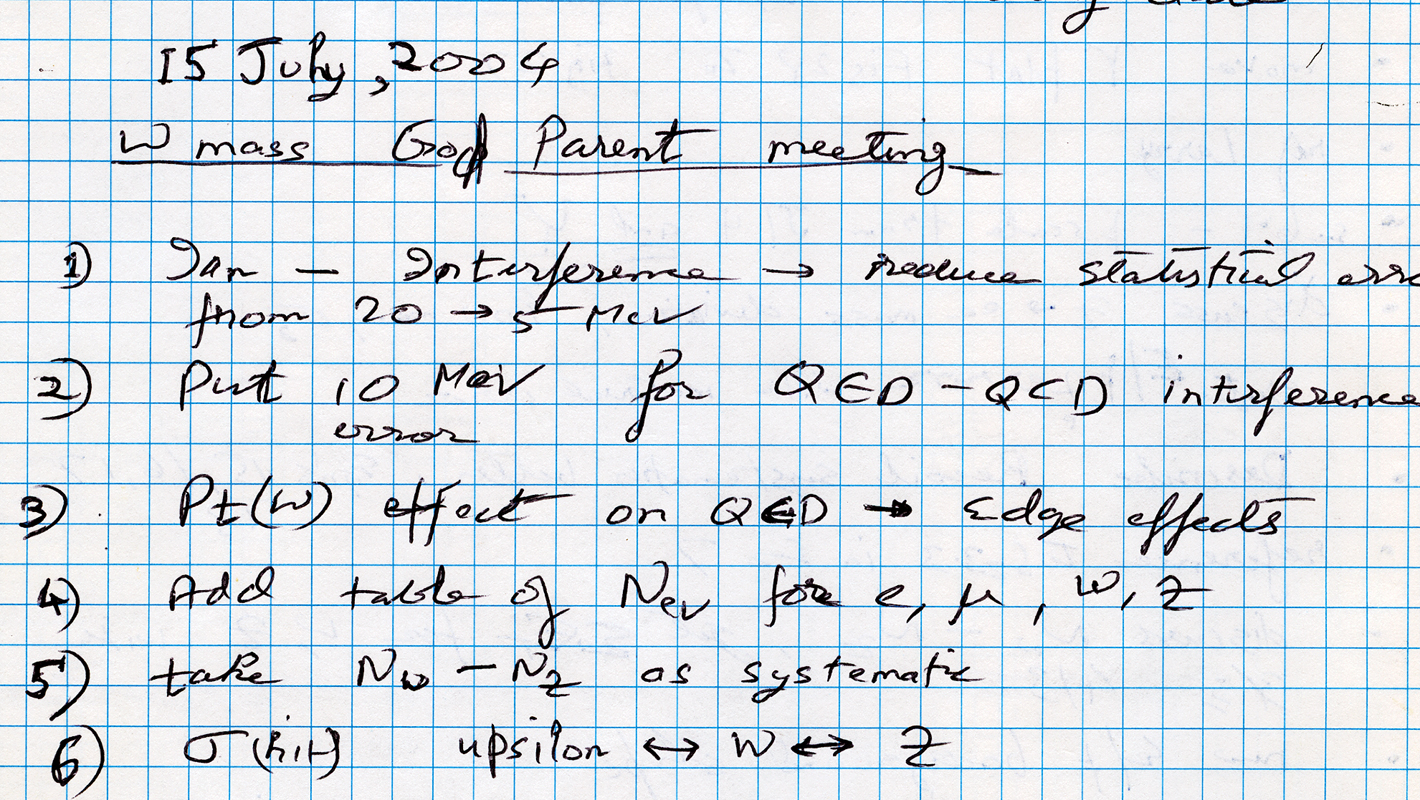 15 July, 2004
W mass God Parent meeting
1) Ian — Interference → reduce statistical erro
from 20 → 5 MeV
2) Put 10 MeV for QED - QCD interference
error
3) Pt(W) effect on QED → Edge effects
4) Add table of Nev for e, μ, W, Z
5) take Nw - Nz as systematic
6) σ(hit) upsilon ↔ W ↔ Z